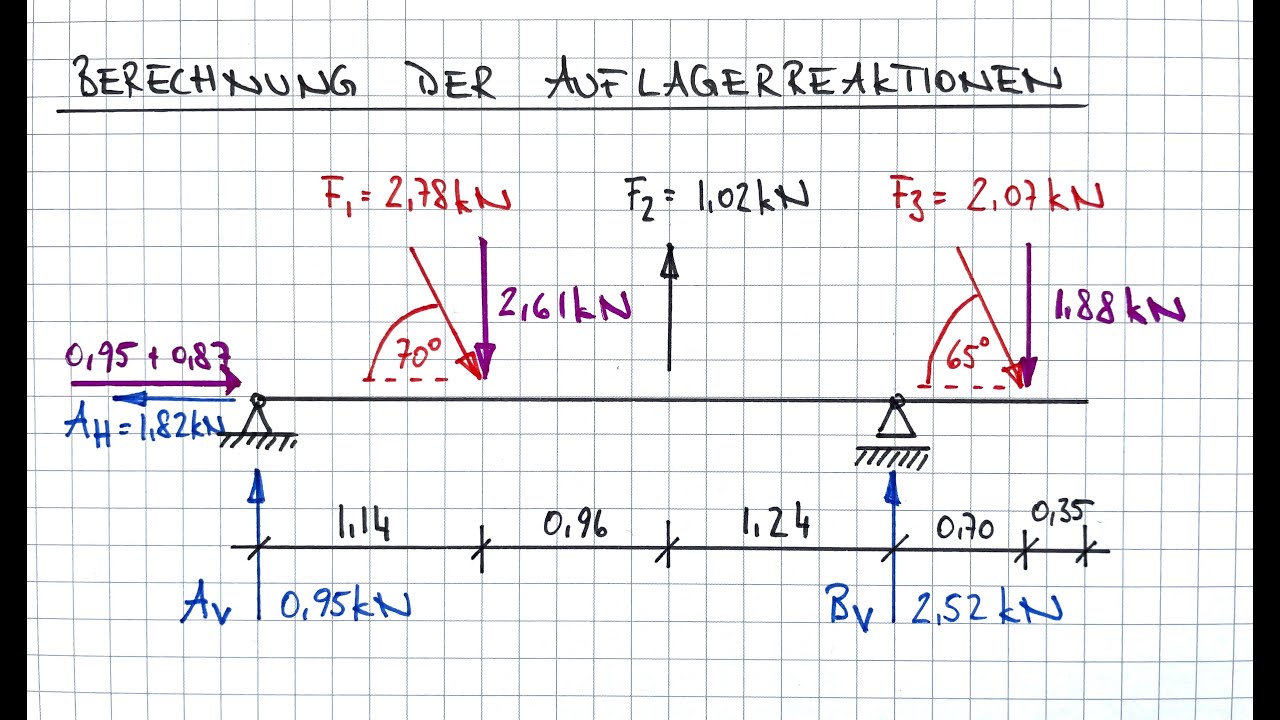 BERECHNUNG DER AUFLAGERREAKTIONEN
F₁ = 2,78kN F₂ = 1,02kN F₃ = 2,07kN
2,61kN 1,88kN
70° 65°
0,95 + 0,87
A_H = 1,82kN
1,14 0,96 1,24 0,70 0,35
A_V 0,95kN B_V 2,52kN